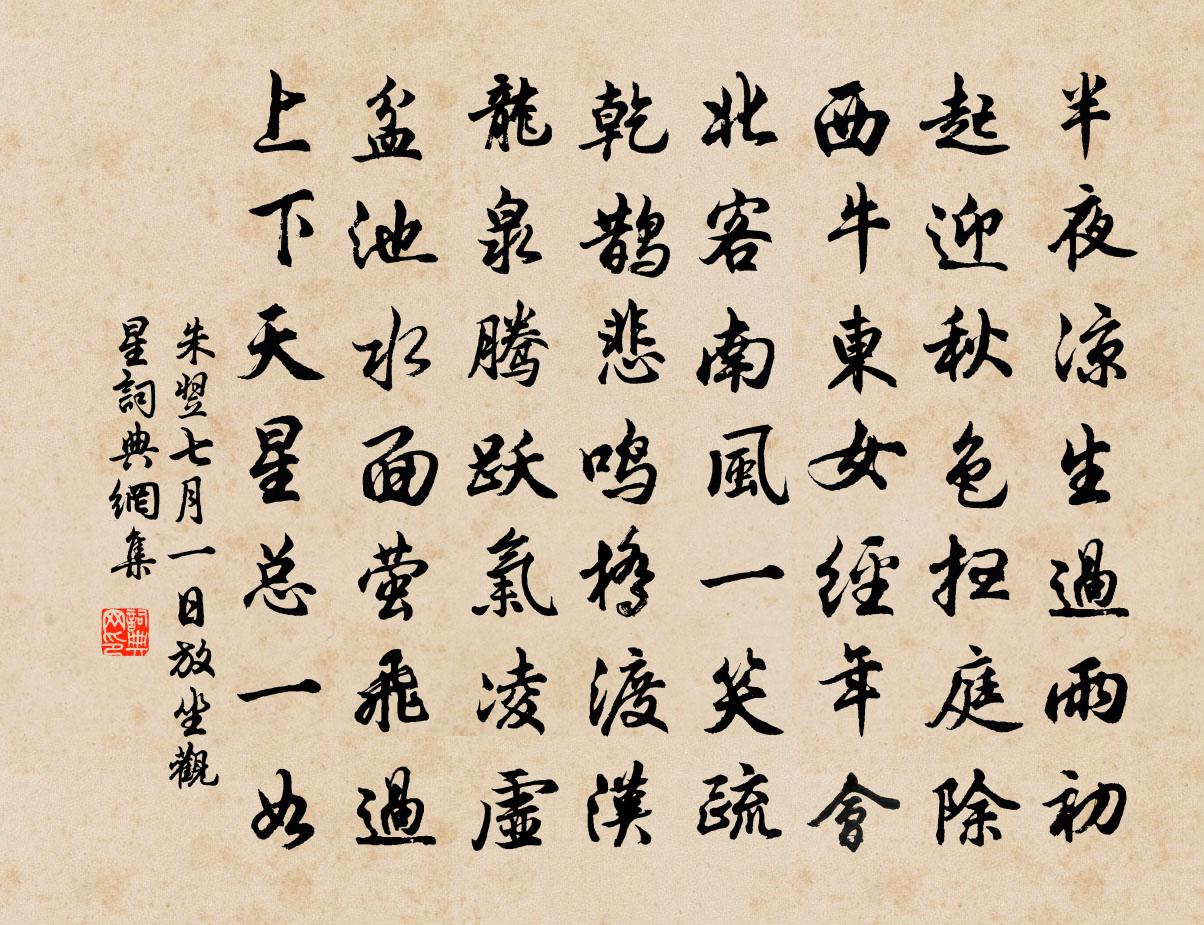 半夜涼生過雨初
起迎秋色扫庭除
西牛東女經年會
北客南風一笑疏
乾鹊悲鸣橋渡漢
龍泉腾跃氣凌虛
盆池水面萤飛過
上下天星总一如
朱翌七月一日放坐觀
星詞典網集
詞典网印